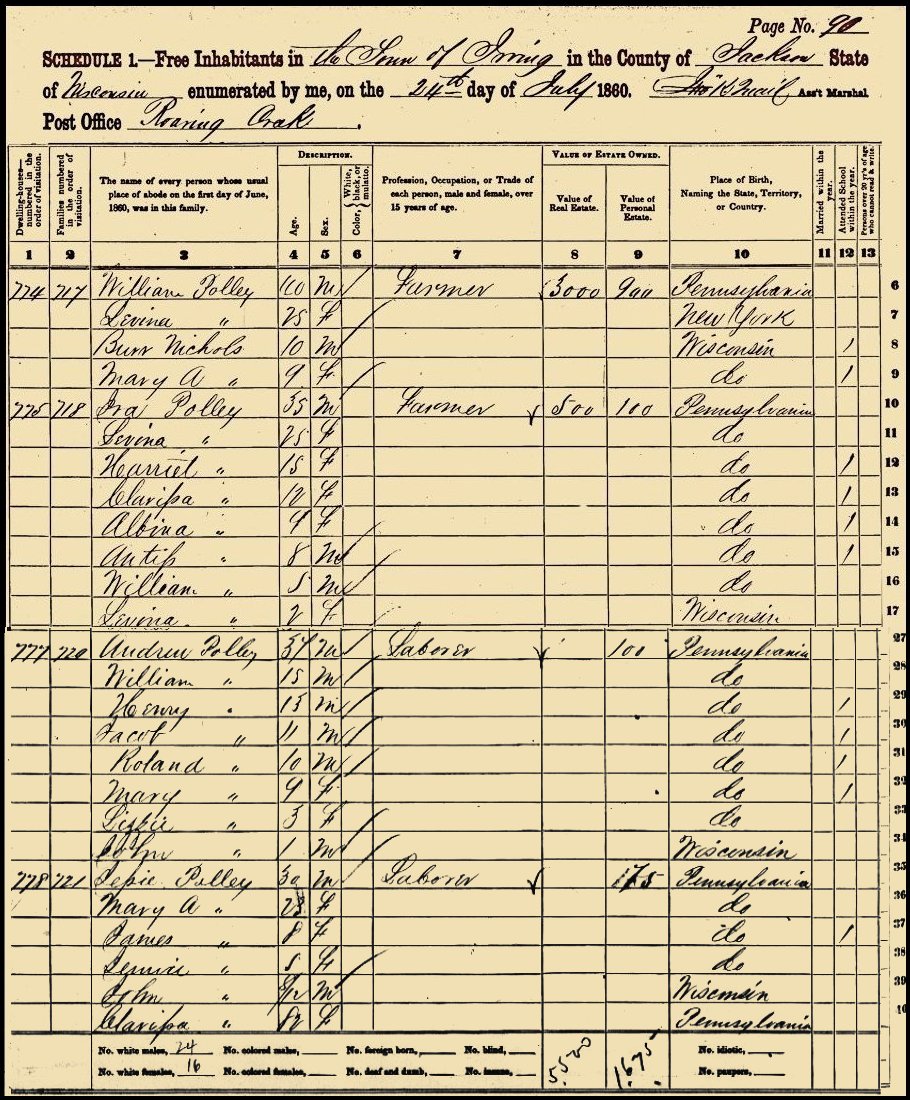 Page No. 90
SCHEDULE 1.—Free Inhabitants in the Town of Irving in the County of Jackson State
of Wisconsin enumerated by me, on the 24th day of July 1860. Ass't Marshal
Post Office Roaring Creek.
Dwelling-houses— numbered in the order of visitation.
Families numbered in the order of visitation.
The name of every person whose usual place of abode on the first day of June, 1860, was in this family.
DESCRIPTION.
Age.
Sex.
Color, { White, black, or mulatto.
Profession, Occupation, or Trade of each person, male and female, over 15 years of age.
VALUE OF ESTATE OWNED.
Value of Real Estate.
Value of Personal Estate.
Place of Birth, Naming the State, Territory, or Country.
Married within the year.
Attended School within the year.
Persons over 20 y'rs of age who cannot read & write.
1 2 3 4 5 6 7 8 9 10 11 12 13
774 717 William Polley 40 M Farmer 3000 900 Pennsylvania 6
Levina " 25 F New York 7
Burr Nichols 10 M Wisconsin / 8
Mary A " 9 F do / 9
775 718 Ira Polley 35 M Farmer 500 100 Pennsylvania 10
Levina " 25 F do 11
Harriet " 15 F do / 12
Clarissa " 12 F do / 13
Albina " 9 F do / 14
Antis " 8 M do / 15
William " 5 M do 16
Levina " 2 F Wisconsin 17
777 720 Andrew Polley 37 M Laborer 100 Pennsylvania 27
William " 15 M do 28
Henry " 13 M do / 29
Jacob " 11 M do / 30
Roland " 10 M do / 31
Mary " 9 F do / 32
" 3 F do 33
John " 1 M Wisconsin 34
778 721 Jessie Polley 30 M Laborer 175 Pennsylvania 35
Mary A " 23 F do 36
James " 8 F do / 37
" 5 F do 38
John " M Wisconsin 39
Clarissa " 82 F Pennsylvania 40
No. white males, 24 No. colored males, No. foreign born, No. blind, 5500 1675 No. idiotic,
No. white females, 16 No. colored females, No. deaf and dumb, No. insane, No. paupers,